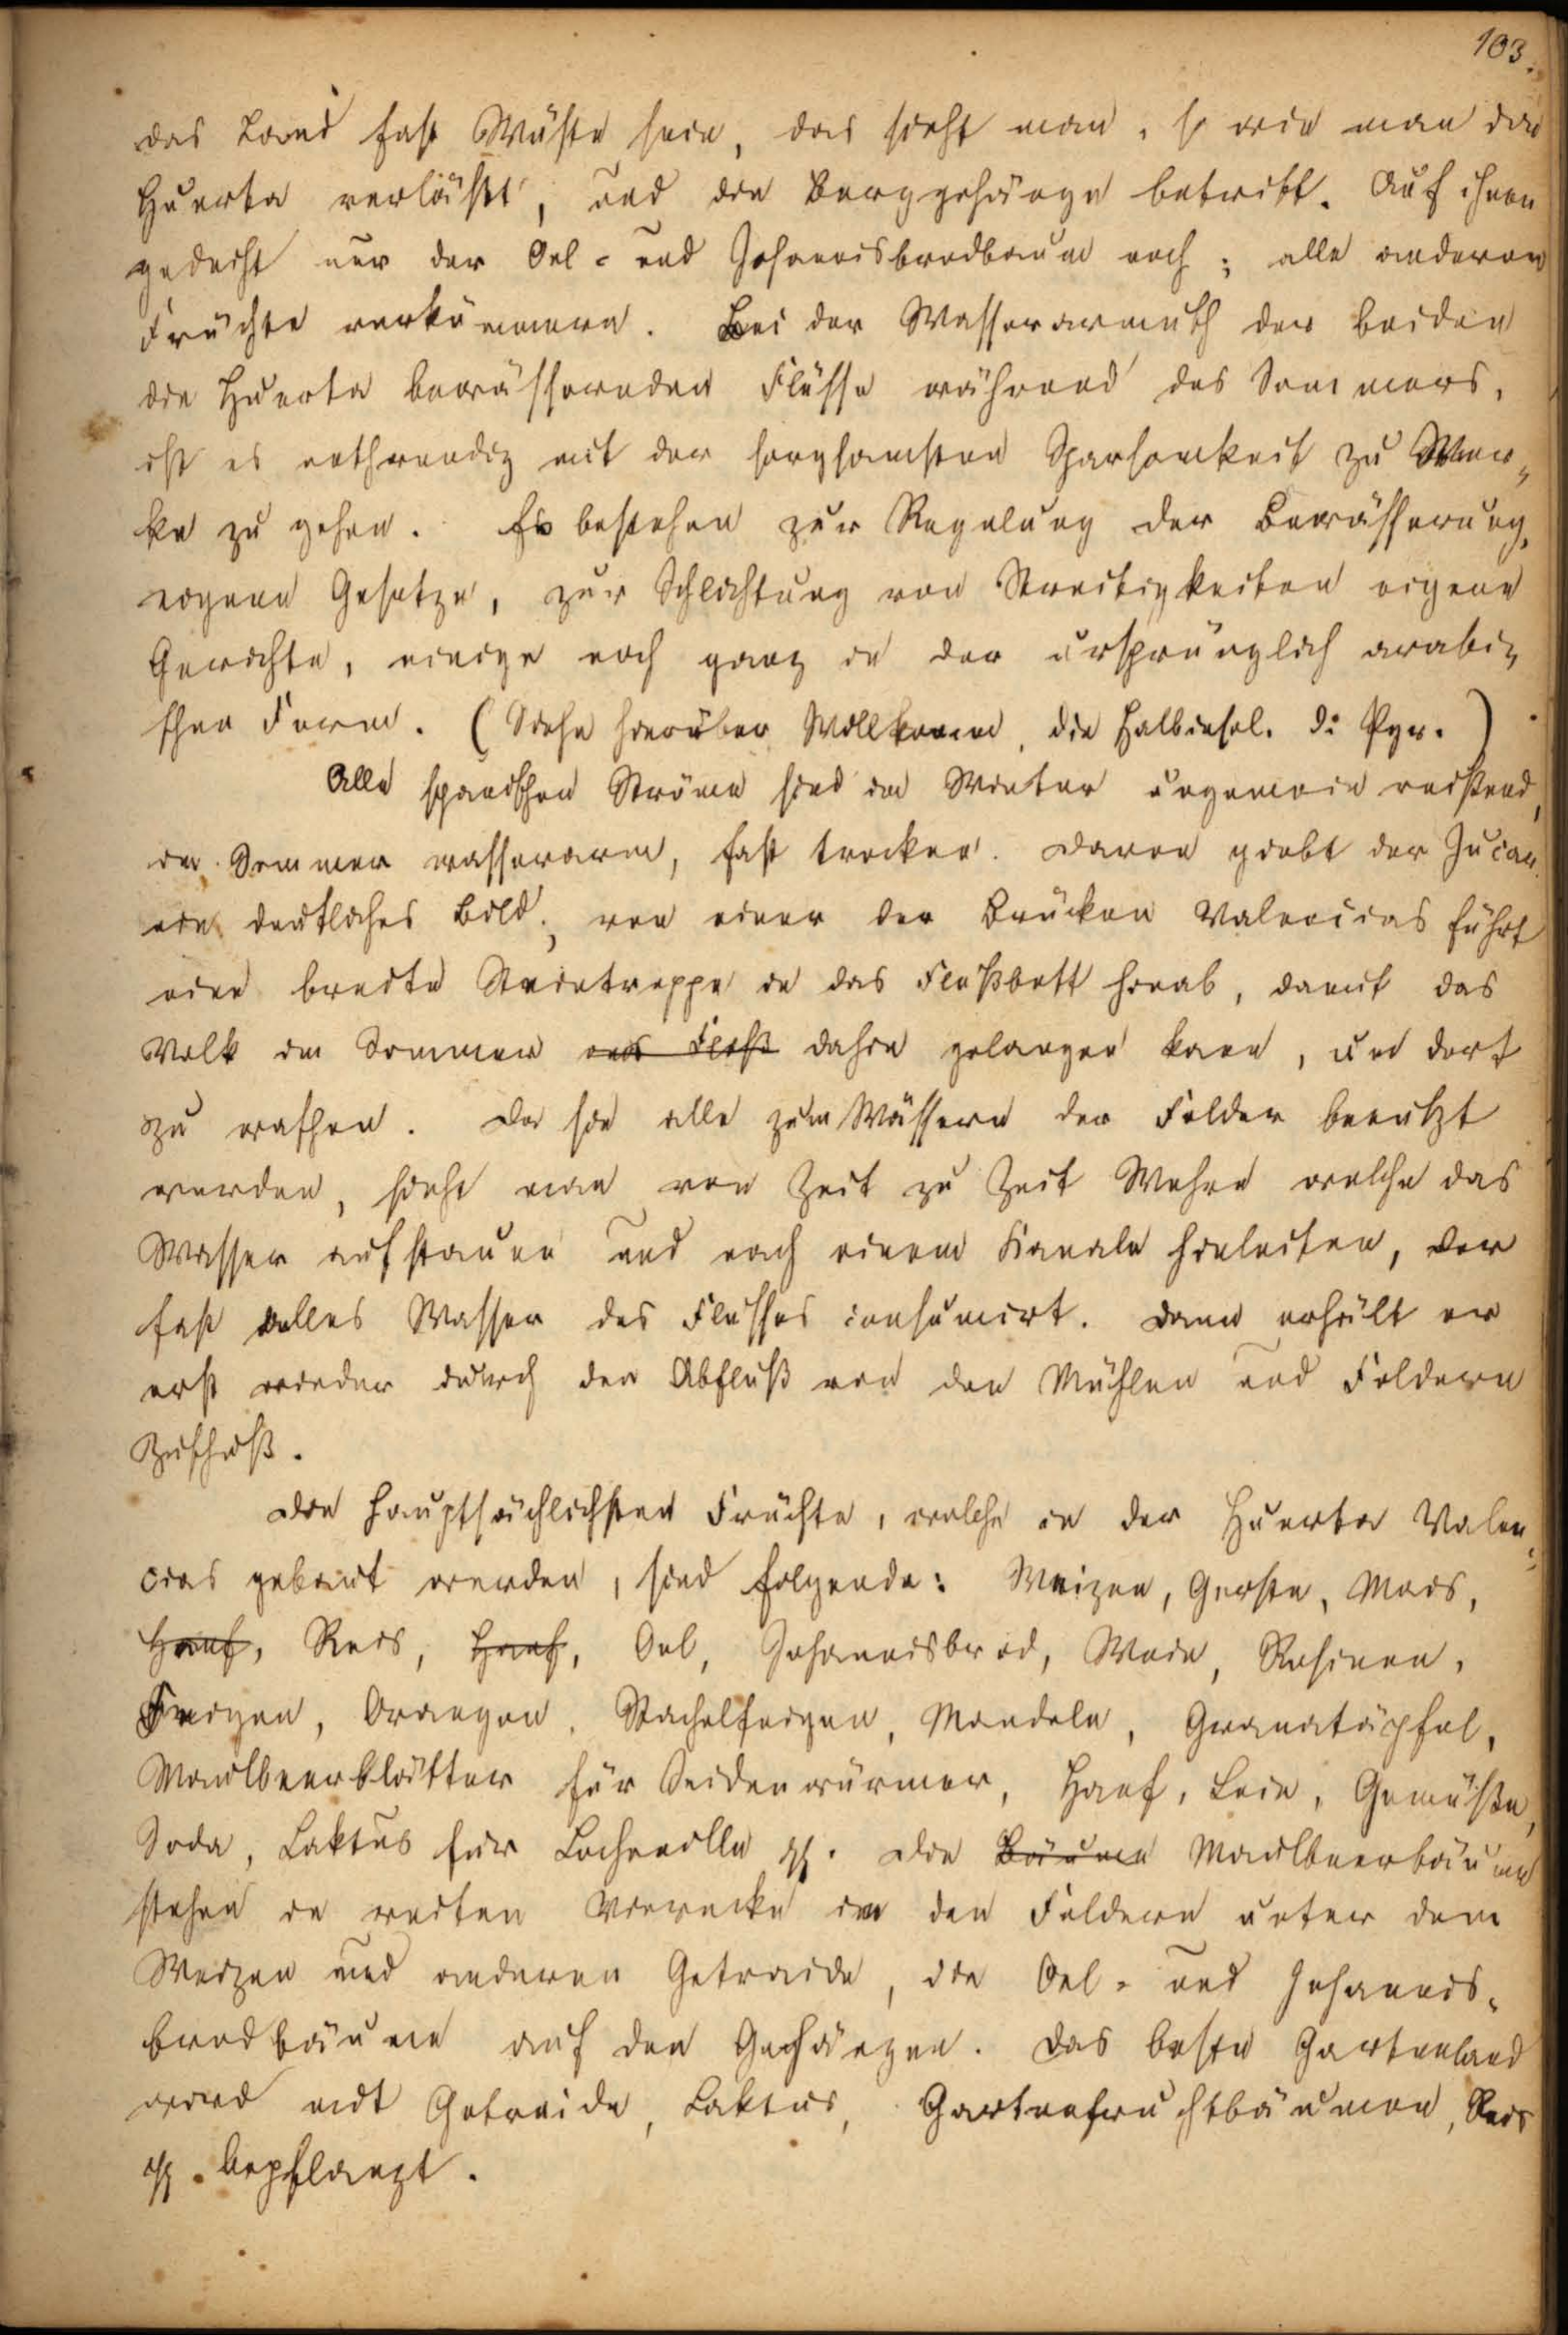 103.
das Land fast Wüste sein, das sieht man, so wie man die
Huerta verläßt, und die Berggehänge betritt. Auf ihnen
gedeiht nur der Oel- und Johannisbrodbaum noch; alle anderen
Früchte verkümmern. Bei der Wasserarmuth der beiden
die Huerta bewässernden Flüsse während des Sommers,
ist es nothwendig mit der sorgsamsten Sparsamkeit zu Wer-
ke zu gehen. Es bestehen zur Regelung der Bewässerung,
eigene Gesetze, zur Schlichtung von Streitigkeiten eigene
Gerichte, einige noch ganz in der ursprünglich arabi-
schen Form. (Siehe hierüber Willkomm, die Halbinsel. d: Pyr.)
Alle spanischen Ströme sind im Winter ungemein reißend,
im Sommer wasserarm, fast trocken. Davon giebt der Jucar
ein deutliches Bild; von einer der Brücken Valencias führt
eine breite Steintreppe in das Flußbett hinab, damit das
Volk im Sommer ins Fluß dahin gelangen kann, um dort
zu waschen. Da sie alle zum Wässern der Felder benutzt
werden, sieht man von Zeit zu Zeit Wehre welche das
Wasser aufstauen und nach einem Kanale hinleiten, der
fast alles Wasser des Flusses consumirt. Dann erhält er
erst wieder durch den Abfluß von den Mühlen und Feldern
Zuschuß.
Die hauptsächlichsten Früchte, welche in der Huerta Valen-
cias gebaut werden, sind folgende: Weizen, Gerste, Mais,
Hanf, Reis, Hanf, Oel, Johannisbrod, Wein, Rosinen,
Feigen, Orangen, Stachelfeigen, Mandeln, Granatäpfel,
Maulbeerblätter für Seidenwürmer, Hanf, Lein, Gemüße,
Soda, Caktus für Cochenille pp. Die Bäume Maulbeerbäume
stehen in weiten Vierecke in den Feldern unter dem
Weizen und anderen Getraide, die Oel- und Johannis-
brodbäume auf den Gehängen. Das beste Gartenland
wird mit Getraide, Caktus, Gartenfruchtbäumen, Reis
pp. bepflanzt.